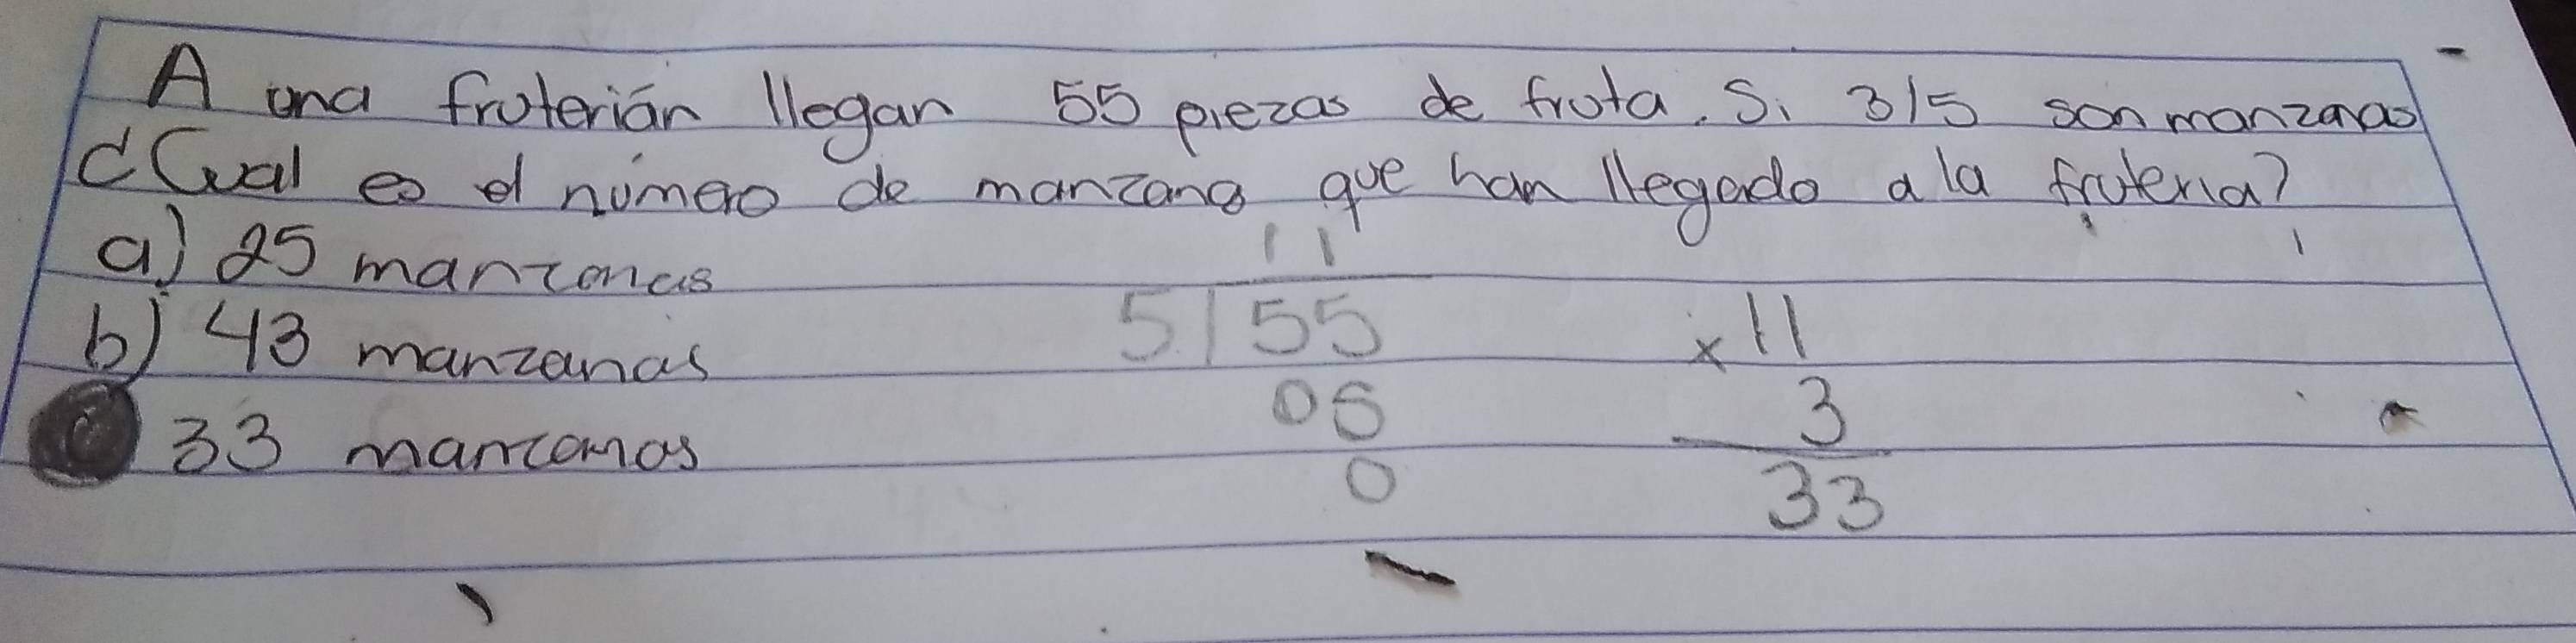 A una fruterián llegan 55 piezas de fruta. Si 3/5 son manzanas
¿Cual es el número de manzanas que han llegado a la fruteria?
a) 25 manzanas
b) 43 manzanas
c) 33 manzanas
11
5 55
05
0
x 11
3
33